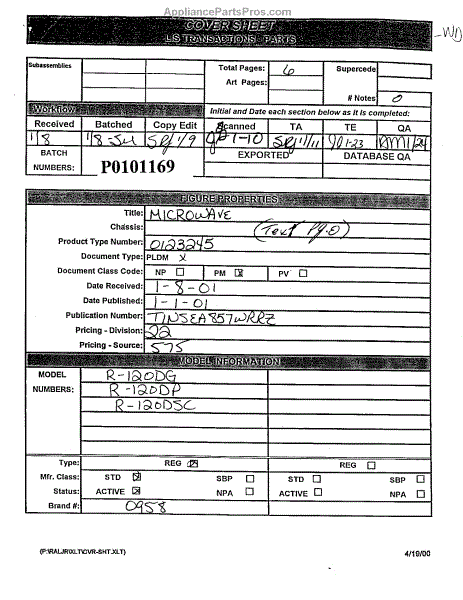 AppliancePartsPros.com
COVER SHEET
LS TRANSACTIONS - PARTS
WD
Subassemblies
Total Pages: 6 Supercede
Art Pages:
# Notes 0
Workflow Initial and Date each section below as it is completed:
Received Batched Copy Edit Scanned TA TE QA
1/8 1/8 1/9 1-10 1/11 1-23 1/24
BATCH NUMBERS: P0101169 EXPORTED DATABASE QA
FIGURE PROPERTIES
Title: MICROWAVE
Chassis: (Text Pg. 0)
Product Type Number: 0123245
Document Type: PLDM X
Document Class Code: NP PM X PV
Date Received: 1-8-01
Date Published: 1-1-01
Publication Number: TINSEA857WRRZ
Pricing - Division: 22
Pricing - Source: 575
MODEL INFORMATION
MODEL NUMBERS:
R-120DG
R-120DP
R-120DSC
Type: REG X REG
Mfr. Class: STD X SBP STD SBP
Status: ACTIVE X NPA ACTIVE NPA
Brand #: 0958
(P:\RALJR\XLT\CVR-SHT.XLT) 4/19/00